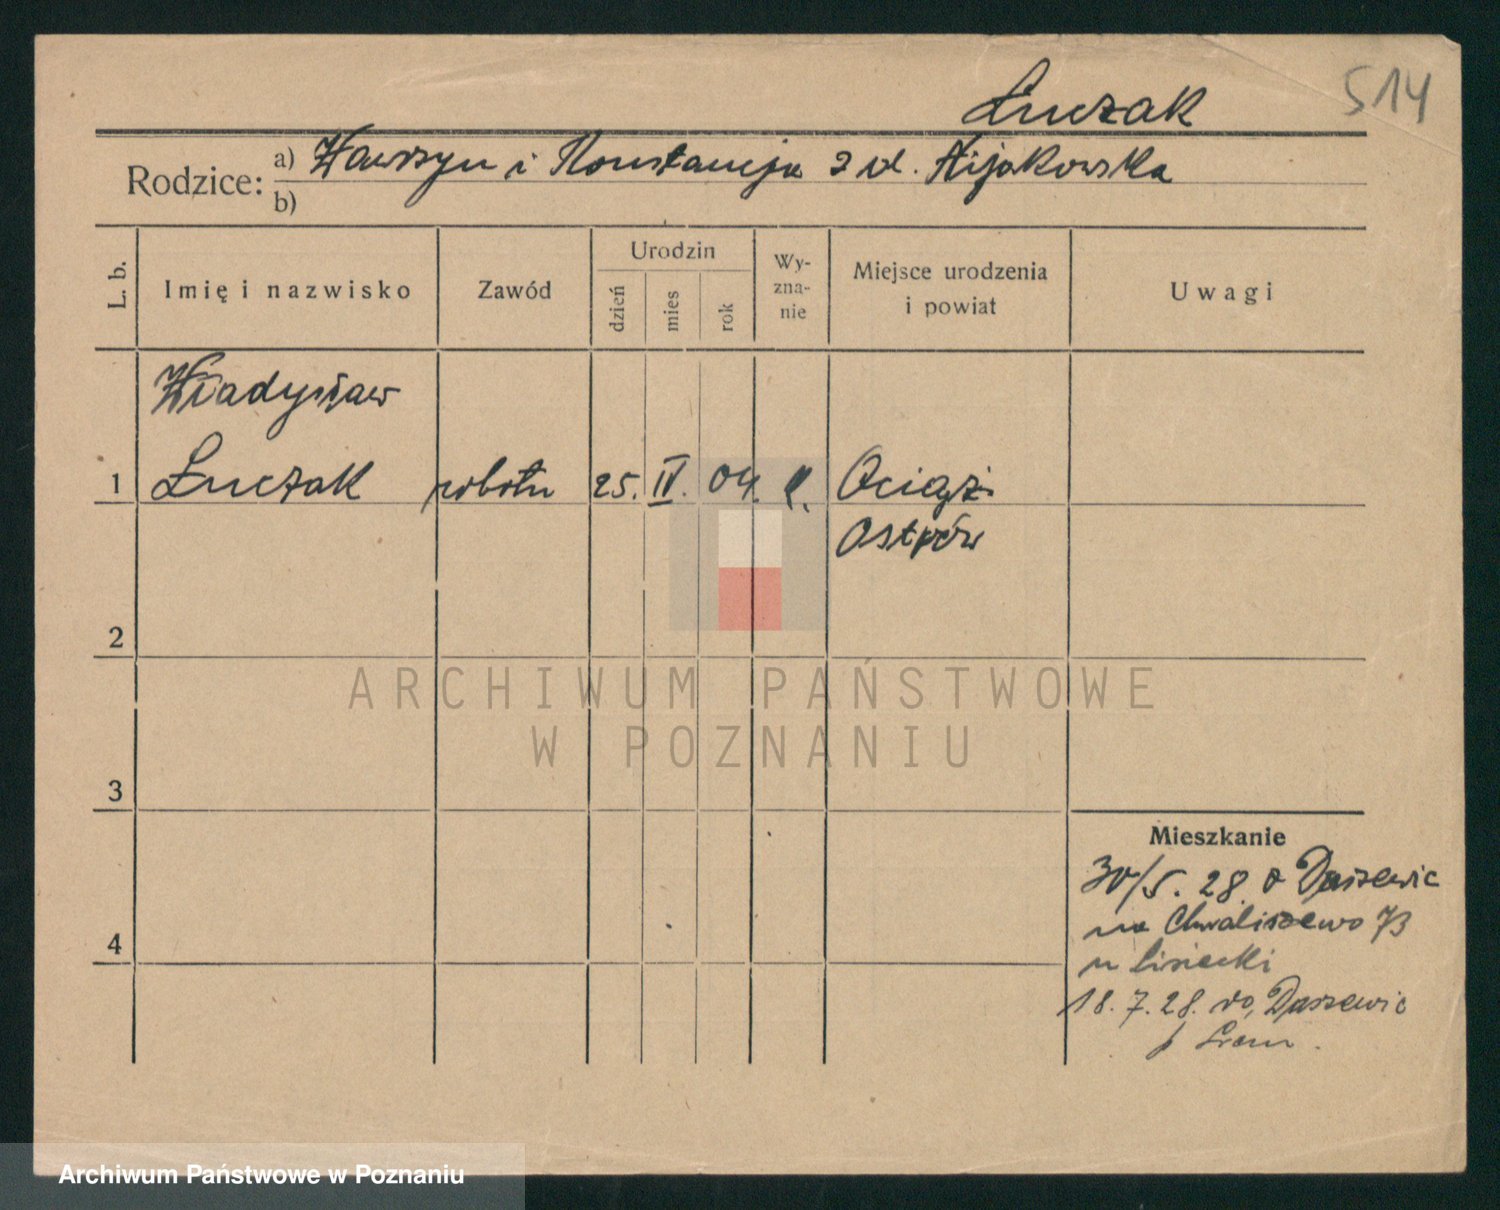 514
Łuczak
Rodzice: a) Wawrzyn i Konstancja z d. Kijakowska
b)
L. b.
Imię i nazwisko
Zawód
Urodzin
dzień
mies
rok
Wy-
zna-
nie
Miejsce urodzenia
i powiat
Uwagi
Władysław
1 Łuczak robotn 25. IV. 04. k. Ociąż
Ostrów
2
3
4
Mieszkanie
30/5. 28 z Daszewic
na Chwaliszewo 73
u Lisiecki
18. 7. 28. do Daszewic
p Śrem.
ARCHIWUM PAŃSTWOWE
W POZNANIU
Archiwum Państwowe w Poznaniu